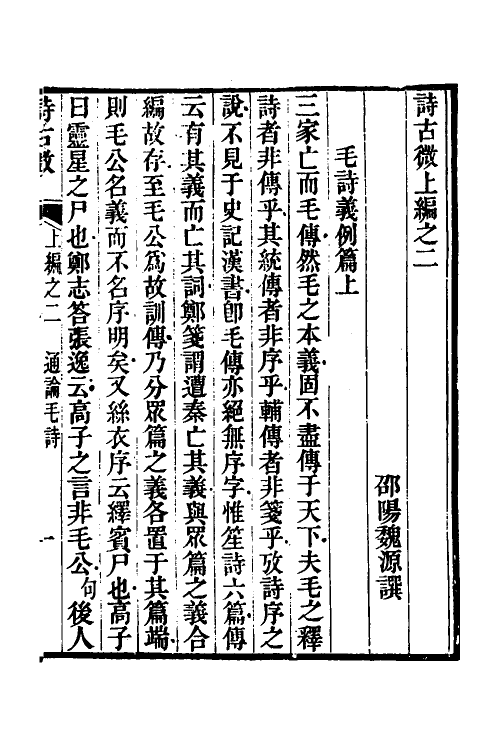 詩古微上編之二
邵陽魏源譔
毛詩義例篇上
三家亡而毛傳然毛之本義固不盡傳于天下夫毛之釋
詩者非傳乎其統傳者非序乎輔傳者非箋乎攷詩序之
說不見于史記漢書卽毛傳亦絕無序字惟笙詩六篇傳
云有其義而亡其詞鄭箋謂遭秦亡其義與眾篇之義合
編故存至毛公爲故訓傳乃分眾篇之義各置于其篇端
則毛公名義而不名序明矣又絲衣序云繹賓尸也高子
曰靈星之尸也鄭志答張逸云高子之言非毛公句後人
詩古微 上編之二 通論毛詩 一